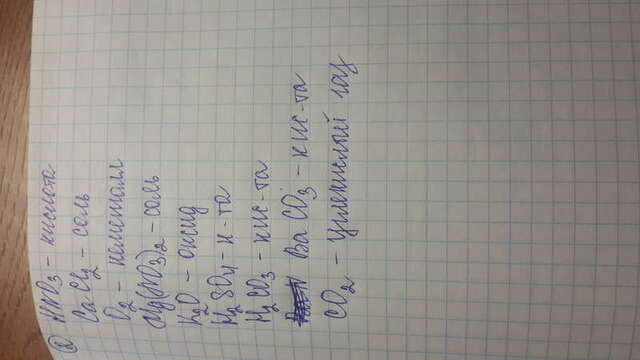 ② HNO3 - кислота
CaCl2 - соль
O2 - неметалл
Mg(NO3)2 - соль
K2O - оксид
H2SO4 - к-та
H2CO3 - кис-та
BaCO3 - кис-та
CO2 - углекислый газ